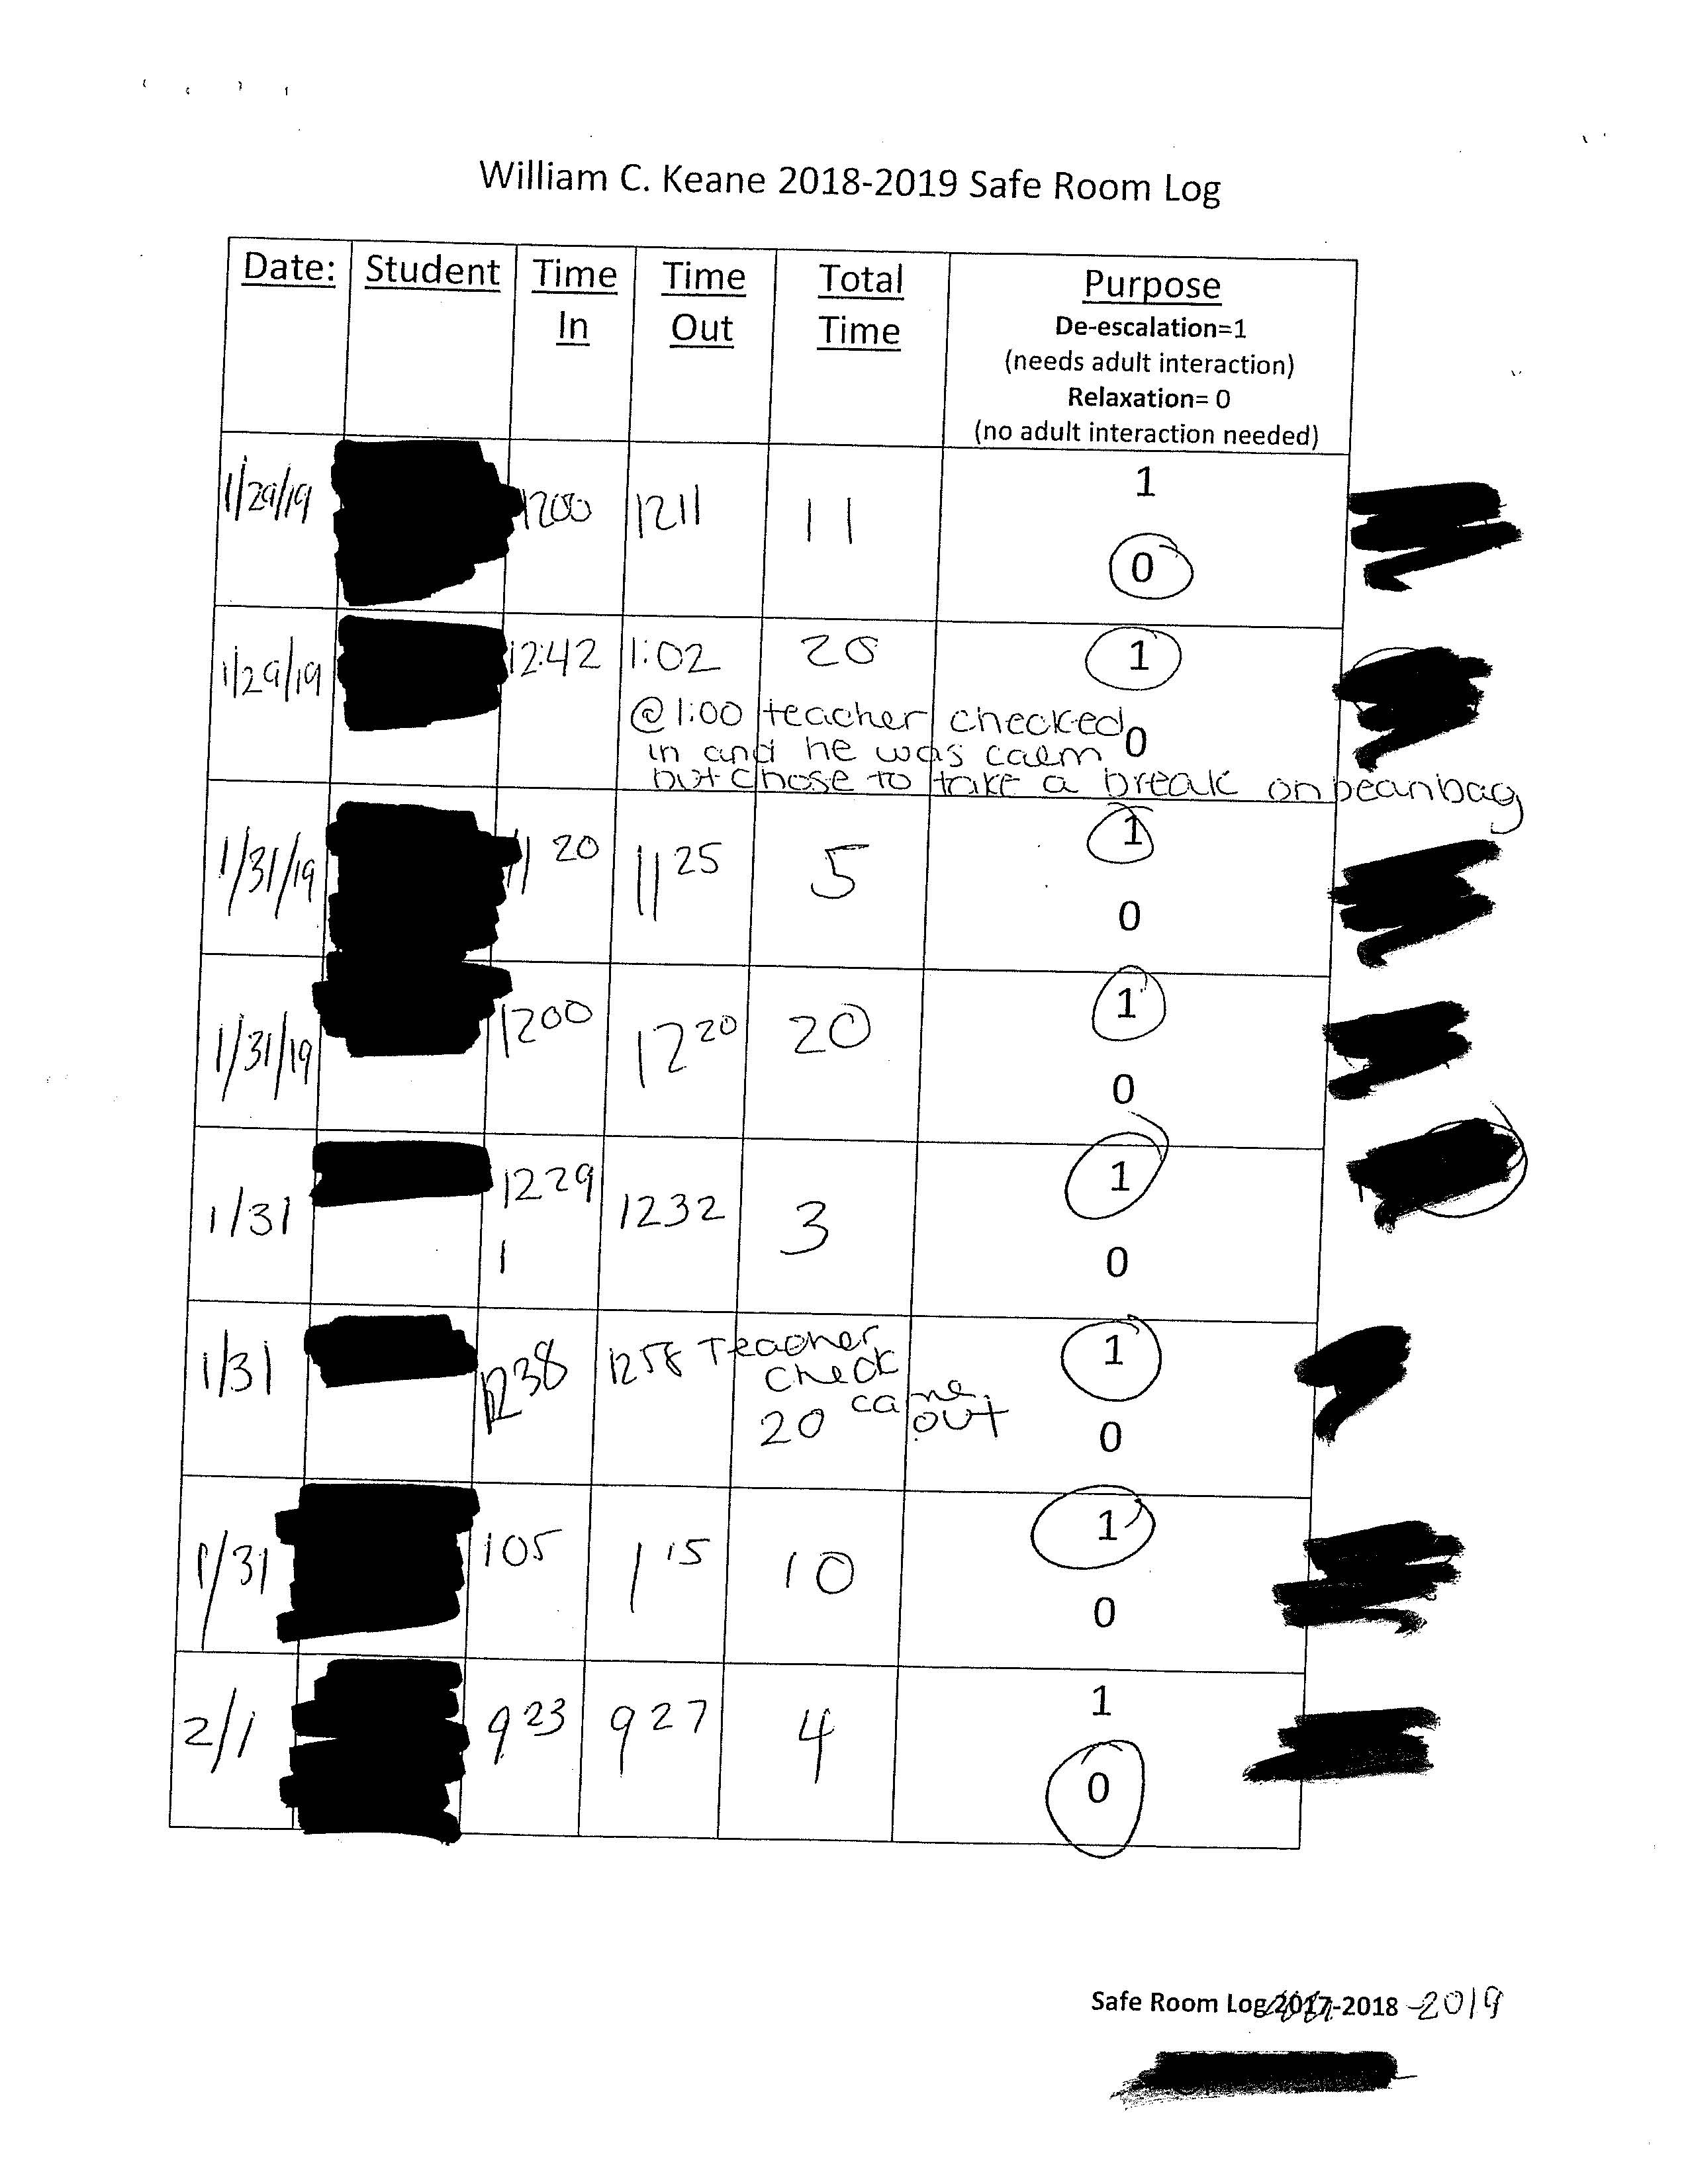 William C. Keane 2018-2019 Safe Room Log
Date: Student Time In Time Out Total Time Purpose
De-escalation=1
(needs adult interaction)
Relaxation= 0
(no adult interaction needed)
1/29/19 1200 1211 11 1
0
1/29/19 12:42 1:02 20 1
@ 1:00 teacher checked
in and he was calm 0
but chose to take a break on beanbag
1/31/19 11 20 11 25 5 1
0
1/31/19 1200 12 20 20 1
0
1/31 1229 1232 3 1
0
1/31 1238 1258 Teacher 1
check
came
20 out 0
1/31 105 1 15 10 1
0
2/1 9 23 9 27 4 1
0
Safe Room Log 2017-2018 -2019